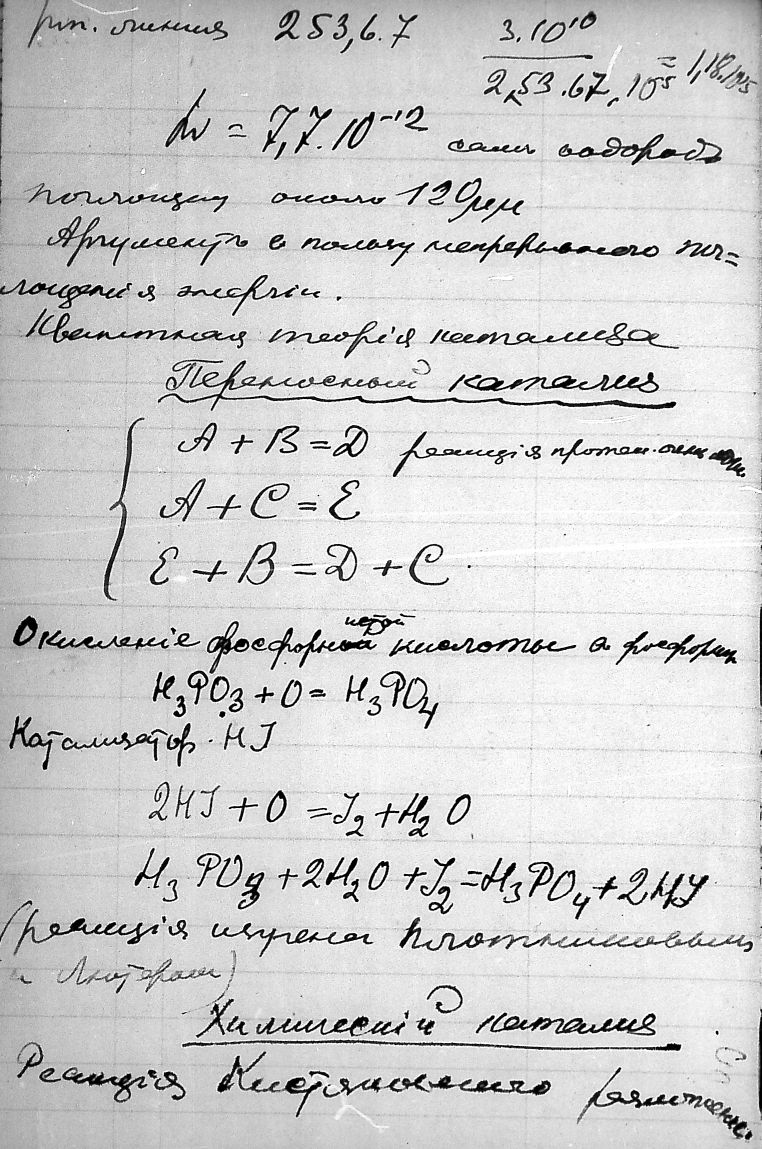 рт. линия 253,6.7 3.10¹⁰ / 2,53.67.10⁵ = 1,18.10¹⁵
hν = 7,7.10⁻¹² самъ водородъ
поглощает около 120 μμ
Аргументъ в пользу непрерывного пог=
лощенія энергіи.
Квантная теорія катализа
Переносный катализ
A + B = D реакція протек. очень
A + C = E
E + B = D + C.
истой
Окисленіе фосфорной кислоты в фосфорн
H₃PO₃ + O = H₃PO₄
Катализатор. HJ
2HJ + O = J₂ + H₂O
H₃PO₃ + 2H₂O + J₂ = H₃PO₄ + 2HJ
(реакція изучена Плотниковым
и Лютером)
Химическій катализ
Реакція Кистяковского разложен.